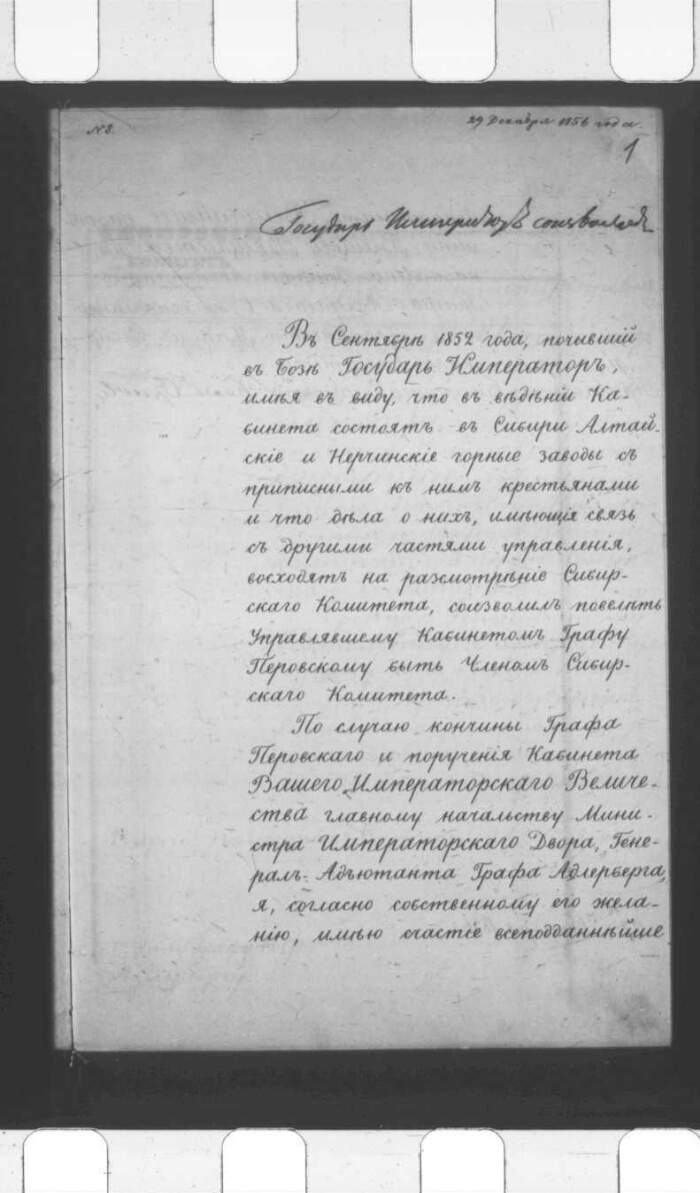 № 8.
29 Декабря 1856 года.
1
Государь Императоръ соизволилъ
Въ Сентябрѣ 1852 года, почившій
въ Бозѣ Государь Императоръ,
имѣя въ виду, что въ вѣдѣніи Ка-
бинета состоятъ въ Сибири Алтай-
скіе и Нерчинскіе горные заводы съ
приписными къ нимъ крестьянами
и что дѣла о нихъ, имѣющія связь
съ другими частями управленія,
восходятъ на разсмотрѣніе Сибир-
скаго Комитета, соизволилъ повелѣть
Управлявшему Кабинетомъ Графу
Перовскому быть Членомъ Сибир-
скаго Комитета.
По случаю кончины Графа
Перовскаго и порученія Кабинета
Вашего Императорскаго Величе-
ства главному начальству Мини-
стра Императорскаго Двора, Гене-
ралъ-Адъютанта Графа Адлерберга,
я, согласно собственному его жела-
нію, имѣю счастіе всеподданнѣйше